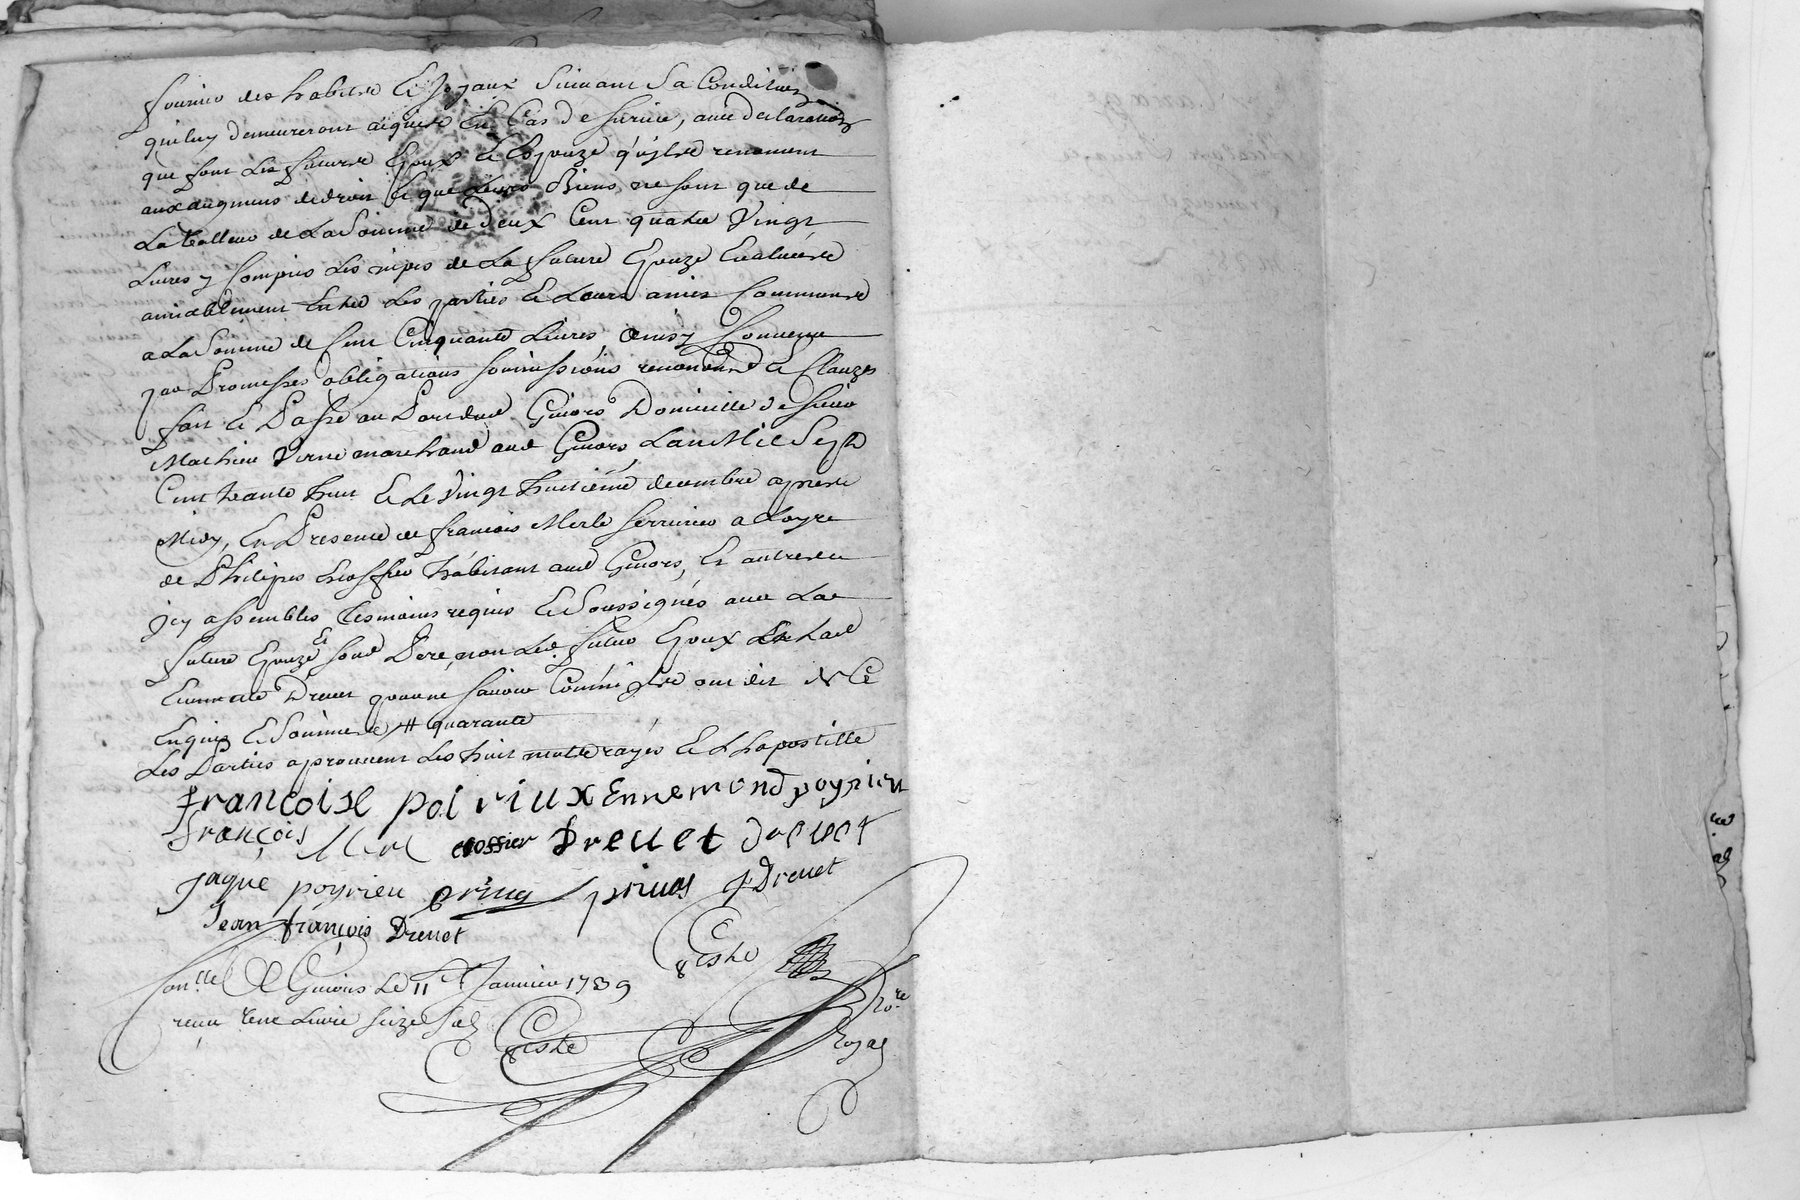 fournir des habits & joyaux suivant sa Condition
qui luy demeureront acquis En Cas de survie, avec declaration
que font les futurs Epoux & Epouze qu'ils renoncent
aux augmens de droit & que Leurs Biens ne sont que de
La Valleur de La Somme de deux Cent quatre Vingt
Livres y Compris Les nipes de La future Epouze Evaluées
amiablement Entre Les parties & Leurs amis Communs
a La Somme de Cent Cinquante Livres, Ainsy Convenu
par Promesses obligations soumissions renonciations & Clauzes
fait & Passé au Givors Domicille de sieur
Mathieu marchand aud Givors, L'an Mil Sept
Cent trante huit & Le Vingt huitième decembre après
Midy, En Presence de françois Merle serrurier a Loyre
de Philipes Crossier habitant aud Givors, Et autres
jcy assemblés Tesmoins requis & Soussignés avec La
future Epouze & Père, non Led. futur Epoux
Drevet pour ne savoir Comme jls ont dit de Ce
Enquis & Sommés # quarante
Les Parties aprouvent Les huit mots rayés & L'hapostille
françoise poirieux Ennemond poyrieu
françois Merl crossier Drevet
Jaque poyrieu privas J Drevet
Jean françois Drevet
Con.lle A Givors Le 11 Janvier 1739
reçu Une Livre seize sols
Teste
Teste
No.re
Royal